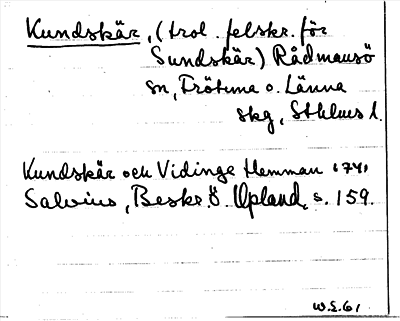 Kundskär, (trol. felskr. för
Sundskär) Rådmansö
sn, Frötuna o. Länna
skg, Sthlms l.
Kundskär och Vidinge Hemman 1741
Salvius, Beskr. ö. Upland, s. 159.
W.L. 61